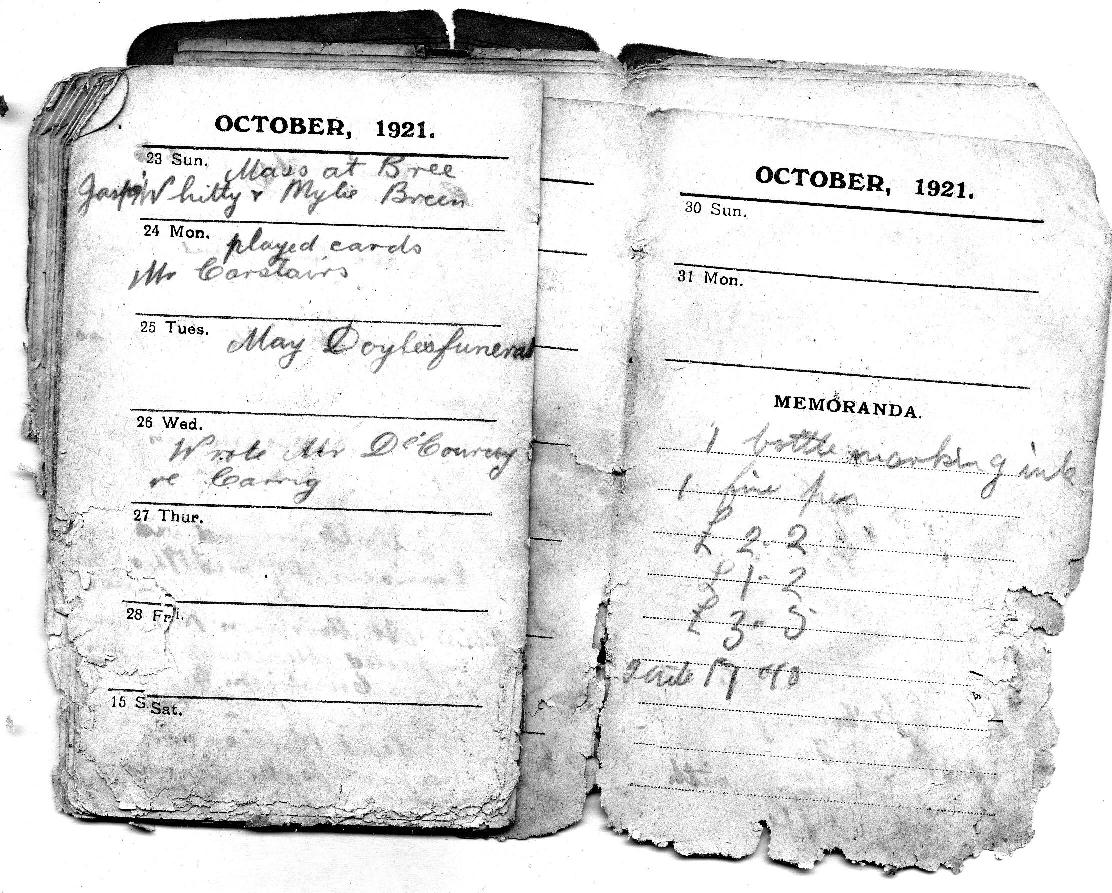 OCTOBER, 1921.
23 Sun. Mass at Bree
Whitty & Mylie Breen
24 Mon. played cards
Mr Carstairs
25 Tues. May Doyles funeral
26 Wed.
Wrote Mr DeCourcy
re Carrig
27 Thur.
28 Fri.
15 S Sat.
OCTOBER, 1921.
30 Sun.
31 Mon.
MEMORANDA.
1 bottle marking ink
1 fine pen
£ 2-2 " "
£ 1-2
£ 3-5